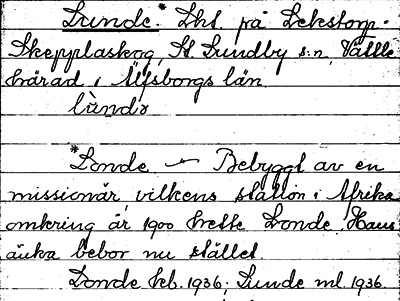 Lunde.* Lht. på Lekstorp.
Skepplaskog, St. Lundby s:n, Vättle
härad i Älfsborgs län.
lùndə
*Londe — Bebyggt av en
missionär, vilkens station i Afrika
omkring år 1900 hette Londe. Hans
änka bebor nu stället.
Londe kb. 1936; Lunde ml. 1936.